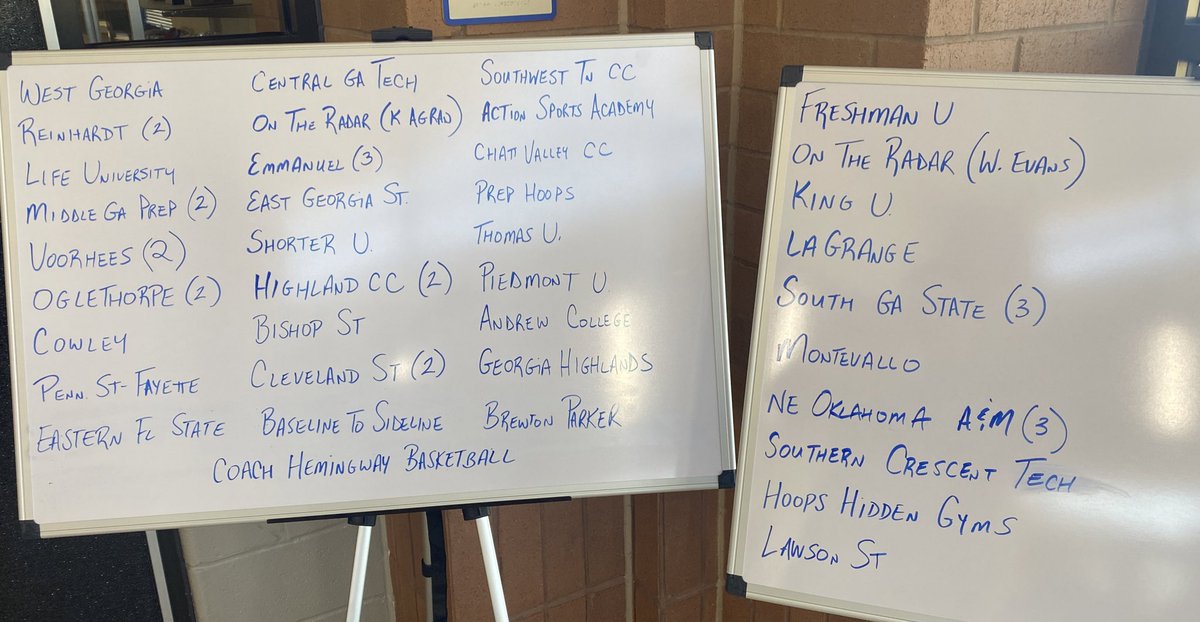 WEST GEORGIA
REINHARDT (2)
LIFE UNIVERSITY
MIDDLE GA PREP (2)
VOORHEES (2)
OGLETHORPE (2)
COWLEY
PENN. ST-FAYETTE
EASTERN FL STATE
CENTRAL GA TECH
ON THE RADAR (K AGRAD)
EMMANUEL (3)
EAST GEORGIA ST.
SHORTER U.
HIGHLAND CC (2)
BISHOP ST
CLEVELAND ST (2)
BASELINE TO SIDELINE
SOUTHWEST TN CC
ACTION SPORTS ACADEMY
CHATT VALLEY CC
PREP HOOPS
THOMAS U.
PIEDMONT U.
ANDREW COLLEGE
GEORGIA HIGHLANDS
BREWTON PARKER
COACH HEMINGWAY BASKETBALL
FRESHMAN U
ON THE RADAR (W. EVANS)
KING U.
LAGRANGE
SOUTH GA STATE (3)
MONTEVALLO
NE OKLAHOMA A&M (3)
SOUTHERN CRESCENT TECH
HOOPS HIDDEN GYMS
LAWSON ST